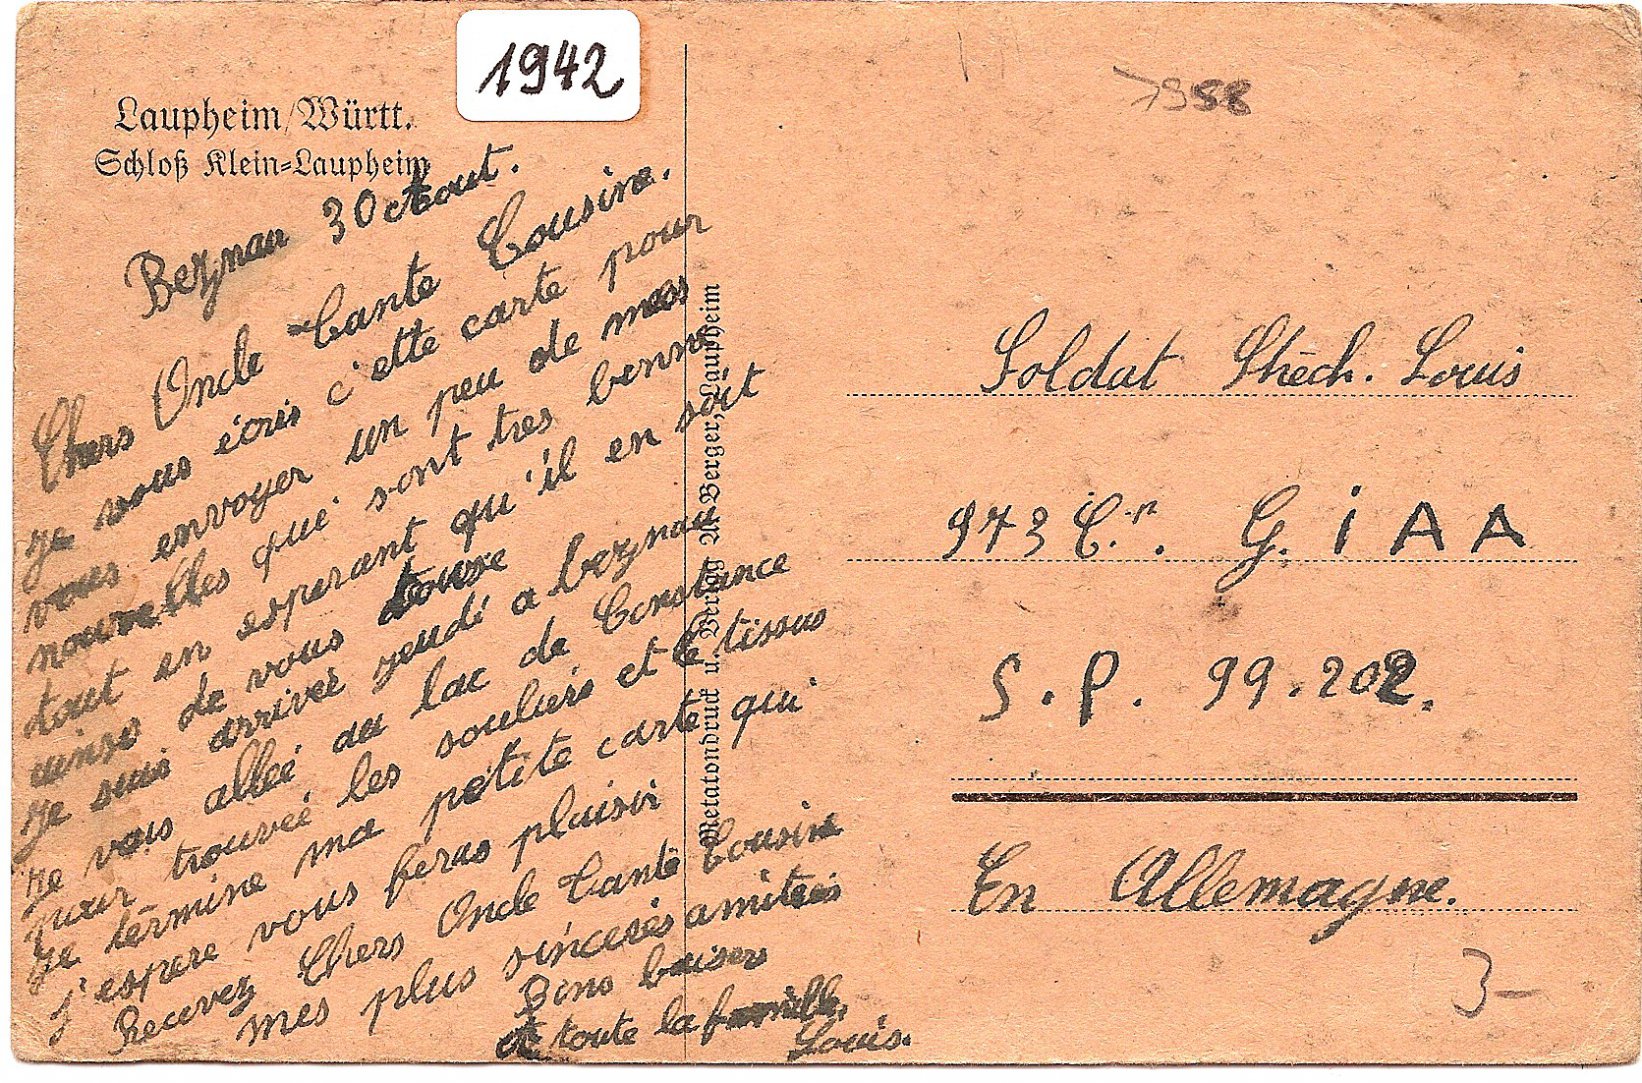 1942
7988
Laupheim/Württ.
Schloß Klein=Laupheim
Beznau 30 Aout.
Chers Oncle Tante Cousine.
Je vous écris c'ette carte pour
vous envoyer un peu de mes
nouvelles qui sont tres bonne
tout en esperant qu'il en soit
ainsi de vous toute
Je suis arriver jeudi a beznau
Je vous allée au lac de Constance
pour trouveé les souliers et le tissus
Je termine ma petite carte qui
j'espere vous feras plaisir
Recevez Chers Oncle Tante Cousine
mes plus sinceres amitiés
Bons baisers
et toute la famille.
Louis.
Metatondruck u. Verlag A. Berger, Laupheim
Soldat Shéch. Louis
973 C.ie. G. i A A
S. P. 99.202.
En Allemagne.
3-